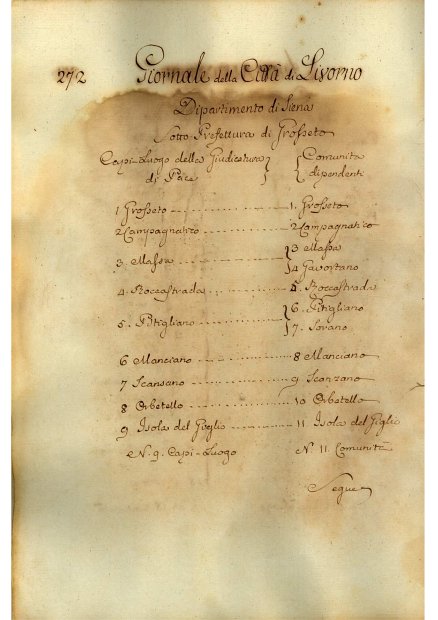 272 Giornale della Città di Livorno
Dipartimento di Siena
Sotto Prefettura di Grosseto
Capi-Luogo della Giudicatura } { Comunità
di Pace dipendenti
1 Grosseto 1. Grosseto
2 Campagnatico 2 Campagnatico
3. Massa } 3 Massa
} 4 Gavorrano
4. Roccastrada 5. Roccastrada
5. Pitigliano } 6. Pitigliano
} 7. Sorano
6 Manciano 8 Manciano
7 Scansano 9 Scanzano
8 Orbetello 10 Orbetello
9 Isola del Giglio 11 Isola del Giglio
N. 9. Capi-Luogo N. 11. Comunità
Segue